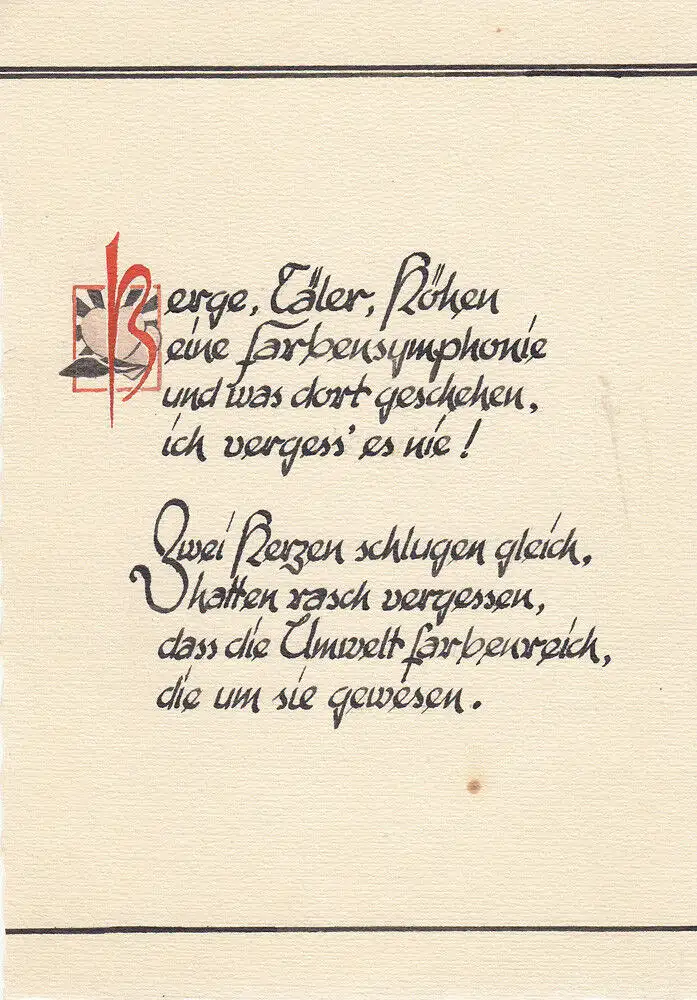 Berge, Täler, Höhen
eine Farbensymphonie
und was dort geschehen,
ich vergess' es nie!
Zwei Herzen schlugen gleich,
hatten rasch vergessen,
dass die Umwelt farbenreich,
die um sie gewesen.